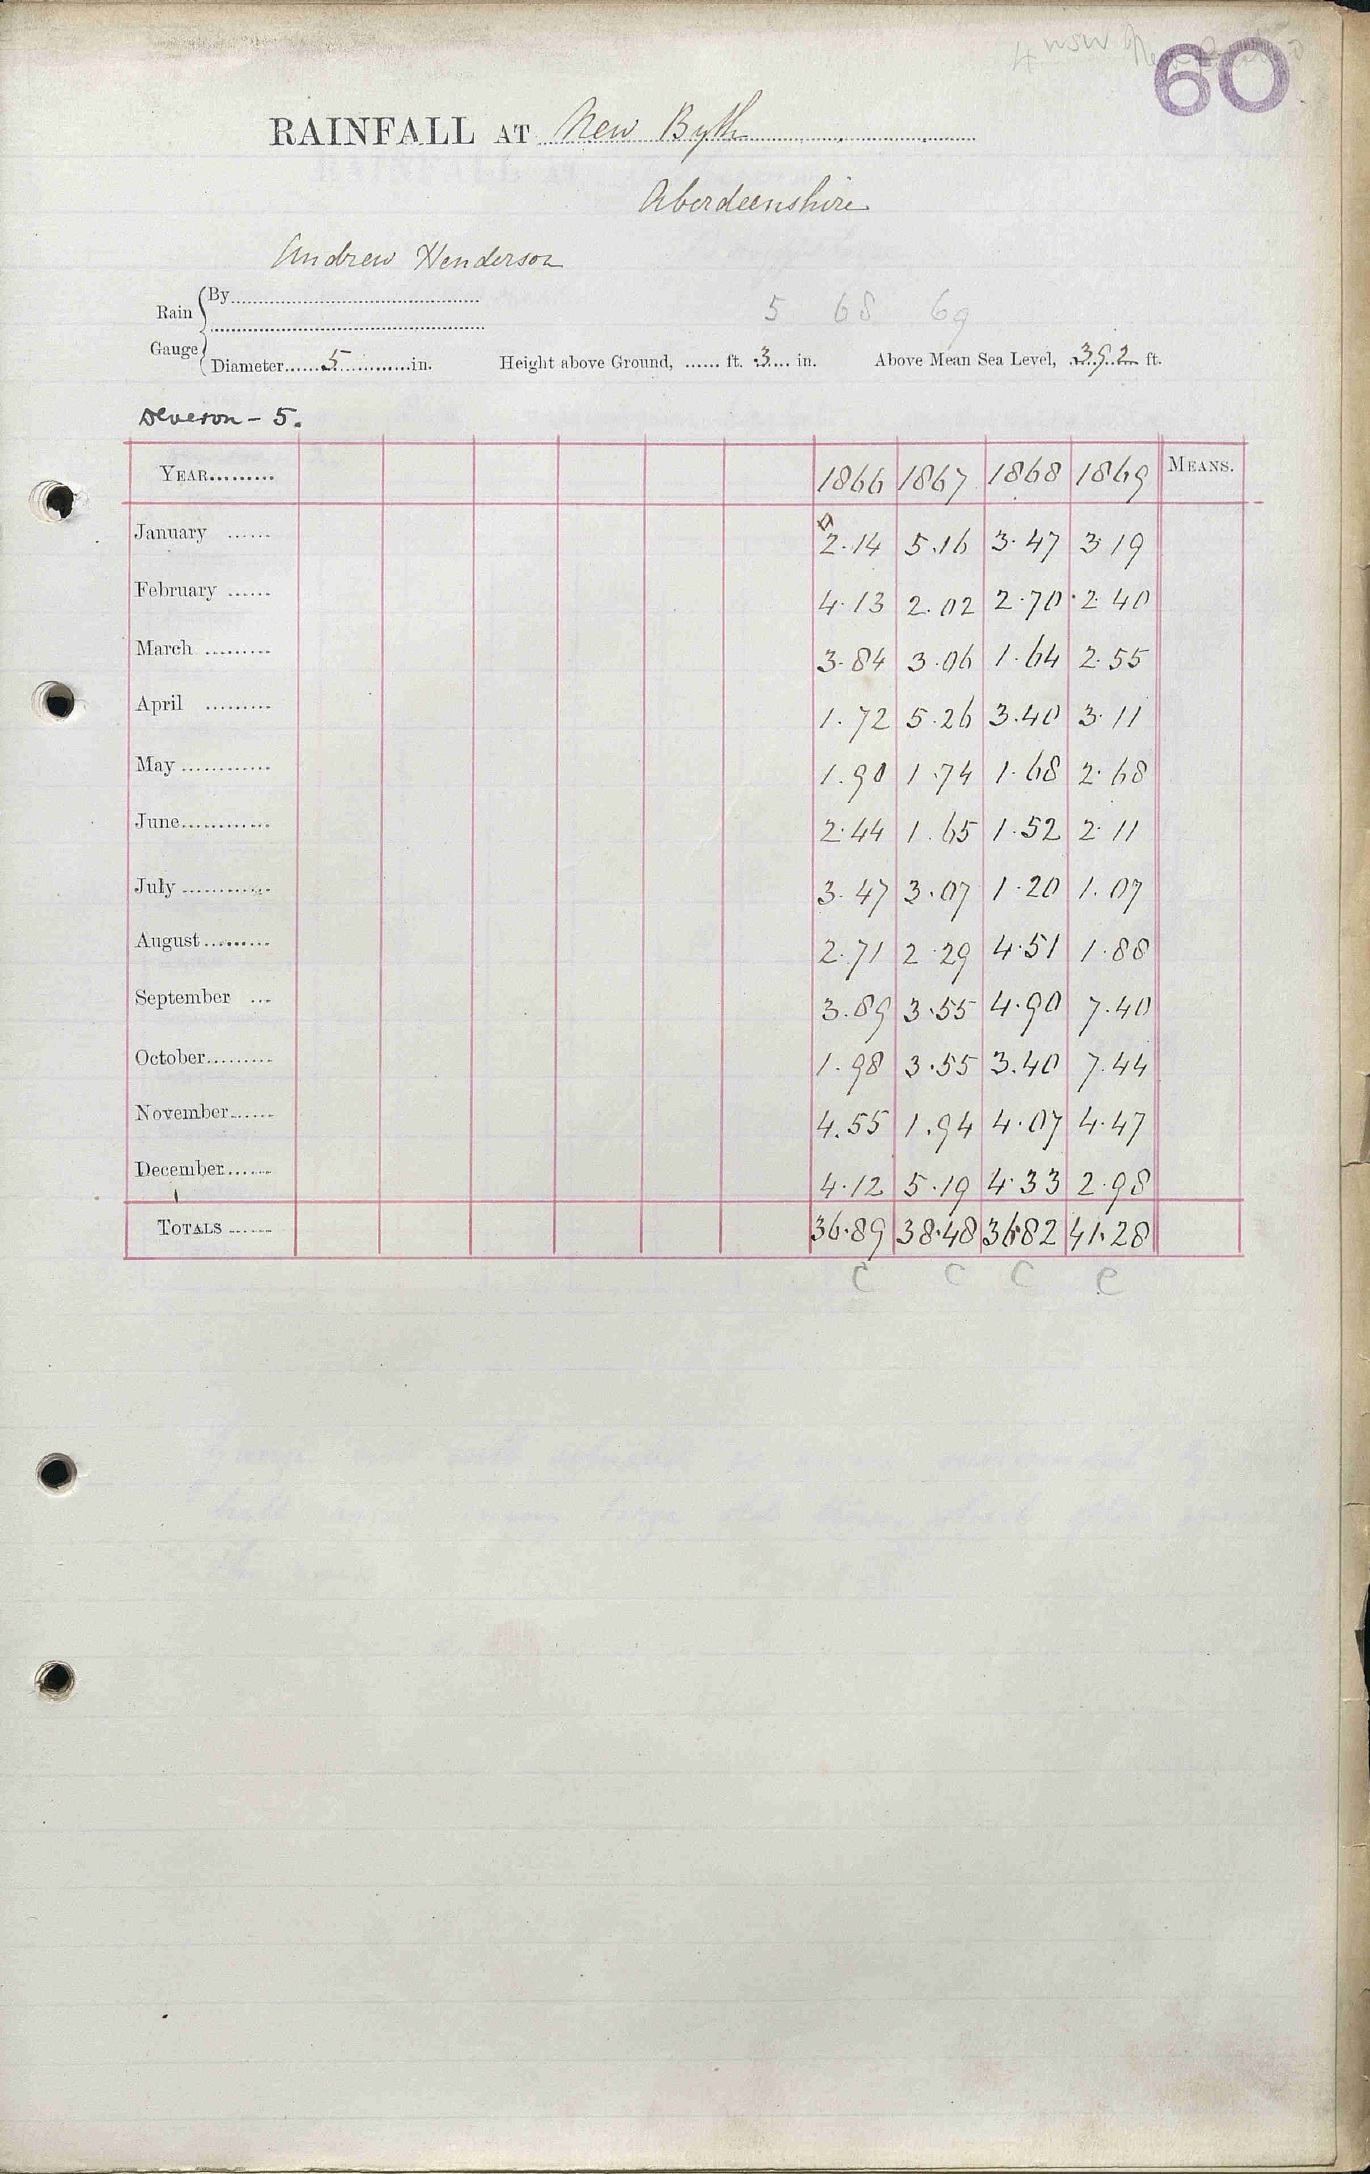 60
RAINFALL AT New Byth
Aberdeenshire
Andrew Henderson
5 68 69
Rain Gauge { By
Diameter......5............in. Height above Ground, ...... ft. 3... in. Above Mean Sea Level, 392 ft.
Deveron - 5.
YEAR......... 1866 1867 1868 1869 MEANS.
January ...... 2.14 5.16 3.47 3 19
February ...... 4.13 2.02 2.70 2.40
March ......... 3.84 3.06 1.64 2.55
April ......... 1.72 5.26 3.40 3.11
May ............ 1.90 1.74 1.68 2.68
June............ 2.44 1.65 1.52 2.11
July ............ 3.47 3.07 1.20 1.07
August ......... 2.71 2.29 4.51 1.88
September ... 3.89 3.55 4.90 7.40
October......... 1.98 3.55 3.40 7.44
November...... 4.55 1.94 4.07 4.47
December...... 4.12 5.19 4.33 2.98
TOTALS ...... 36.89 38.48 36.82 41.28
C C C C